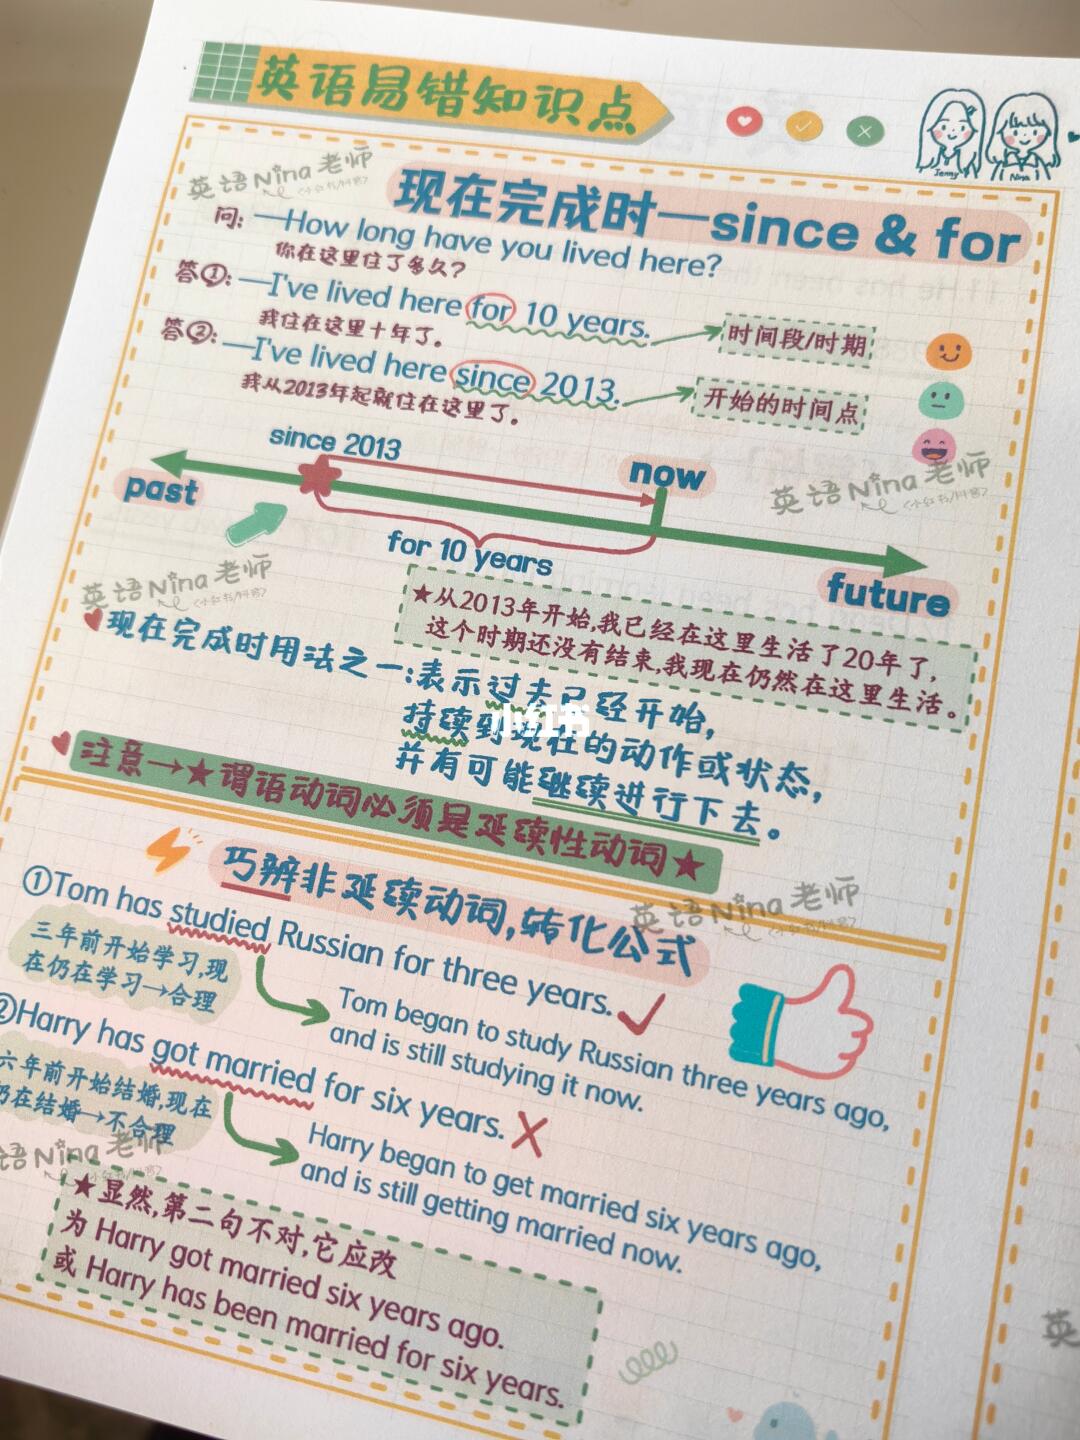 英语易错知识点
Jenny
Nina
英语Nina老师
(小红书/抖音)
现在完成时—since & for
问: —How long have you lived here?
你在这里住了多久?
答①: —I've lived here for 10 years.
时间段/时期
我住在这里十年了。
答②: —I've lived here since 2013.
开始的时间点
我从2013年起就住在这里了。
since 2013
now
past
英语Nina老师
(小红书/抖音)
for 10 years
future
英语Nina老师
(小红书/抖音)
★从2013年开始,我已经在这里生活了20年了,
这个时期还没有结束,我现在仍然在这里生活。
现在完成时用法之一:表示过去已经开始,
持续到现在的动作或状态,
小红书
并有可能继续进行下去。
注意→★谓语动词必须是延续性动词★
巧辨非延续动词,转化公式
英语Nina老师
(小红书/抖音)
①Tom has studied Russian for three years.
三年前开始学习,现
在仍在学习→合理
Tom began to study Russian three years ago,
and is still studying it now.
②Harry has got married for six years.
六年前开始结婚,现在
仍在结婚→不合理
Harry began to get married six years ago,
and is still getting married now.
语Nina老师
(小红书/抖音)
★显然,第二句不对,它应改
为 Harry got married six years ago.
或 Harry has been married for six years.
英